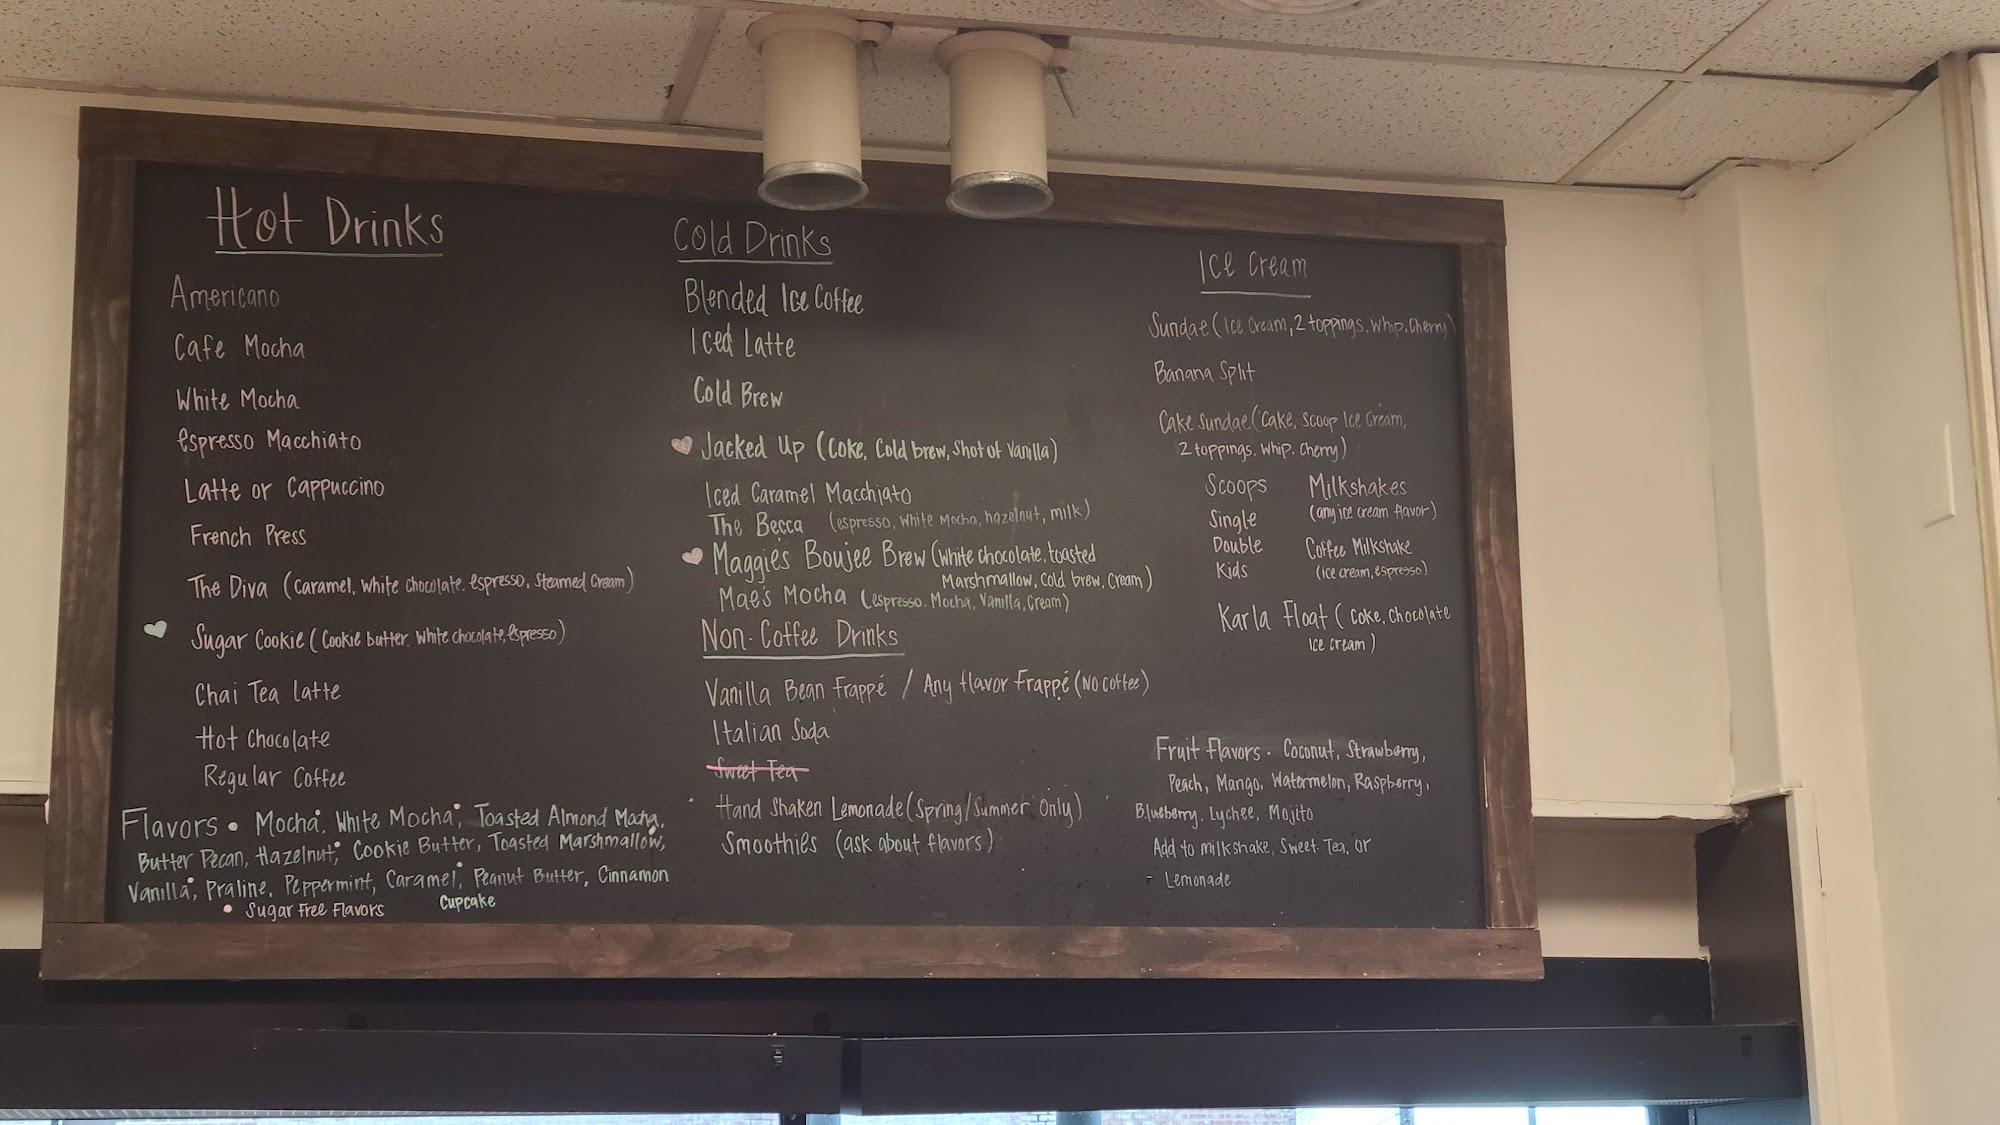 Hot Drinks
Americano
Cafe Mocha
White Mocha
Espresso Macchiato
Latte or Cappuccino
French Press
The Diva (Caramel, White chocolate, Espresso, Steamed Cream)
Sugar Cookie (Cookie butter, White chocolate, Espresso)
Chai Tea Latte
Hot Chocolate
Regular Coffee
Flavors • Mocha•, White Mocha•, Toasted Almond Mocha,
Butter Pecan, Hazelnut•, Cookie Butter, Toasted Marshmallow•,
Vanilla•, Praline, Peppermint, Caramel•, Peanut Butter, Cinnamon
Cupcake
• Sugar Free Flavors
Cold Drinks
Blended Ice Coffee
Iced Latte
Cold Brew
Jacked Up (Coke, Cold brew, Shot of Vanilla)
Iced Caramel Macchiato
The Becca (espresso, White Mocha, hazelnut, milk)
Maggie's Boujee Brew (White chocolate, toasted
Marshmallow, Cold brew, Cream)
Mae's Mocha (espresso, Mocha, Vanilla, Cream)
Non-Coffee Drinks
Vanilla Bean Frappé / Any flavor Frappé (No coffee)
Italian Soda
Sweet Tea
Hand Shaken Lemonade (Spring/Summer Only)
Smoothies (ask about flavors)
Ice Cream
Sundae (Ice Cream, 2 toppings, Whip, Cherry)
Banana Split
Cake Sundae (Cake, Scoop Ice Cream,
2 toppings, Whip, Cherry)
Scoops
Single
Double
Kids
Milkshakes
(any ice cream flavor)
Coffee Milkshake
(ice cream, espresso)
Karla Float (Coke, Chocolate
Ice cream)
Fruit Flavors - Coconut, Strawberry,
Peach, Mango, Watermelon, Raspberry,
Blueberry, Lychee, Mojito
Add to milkshake, Sweet Tea, or
- Lemonade